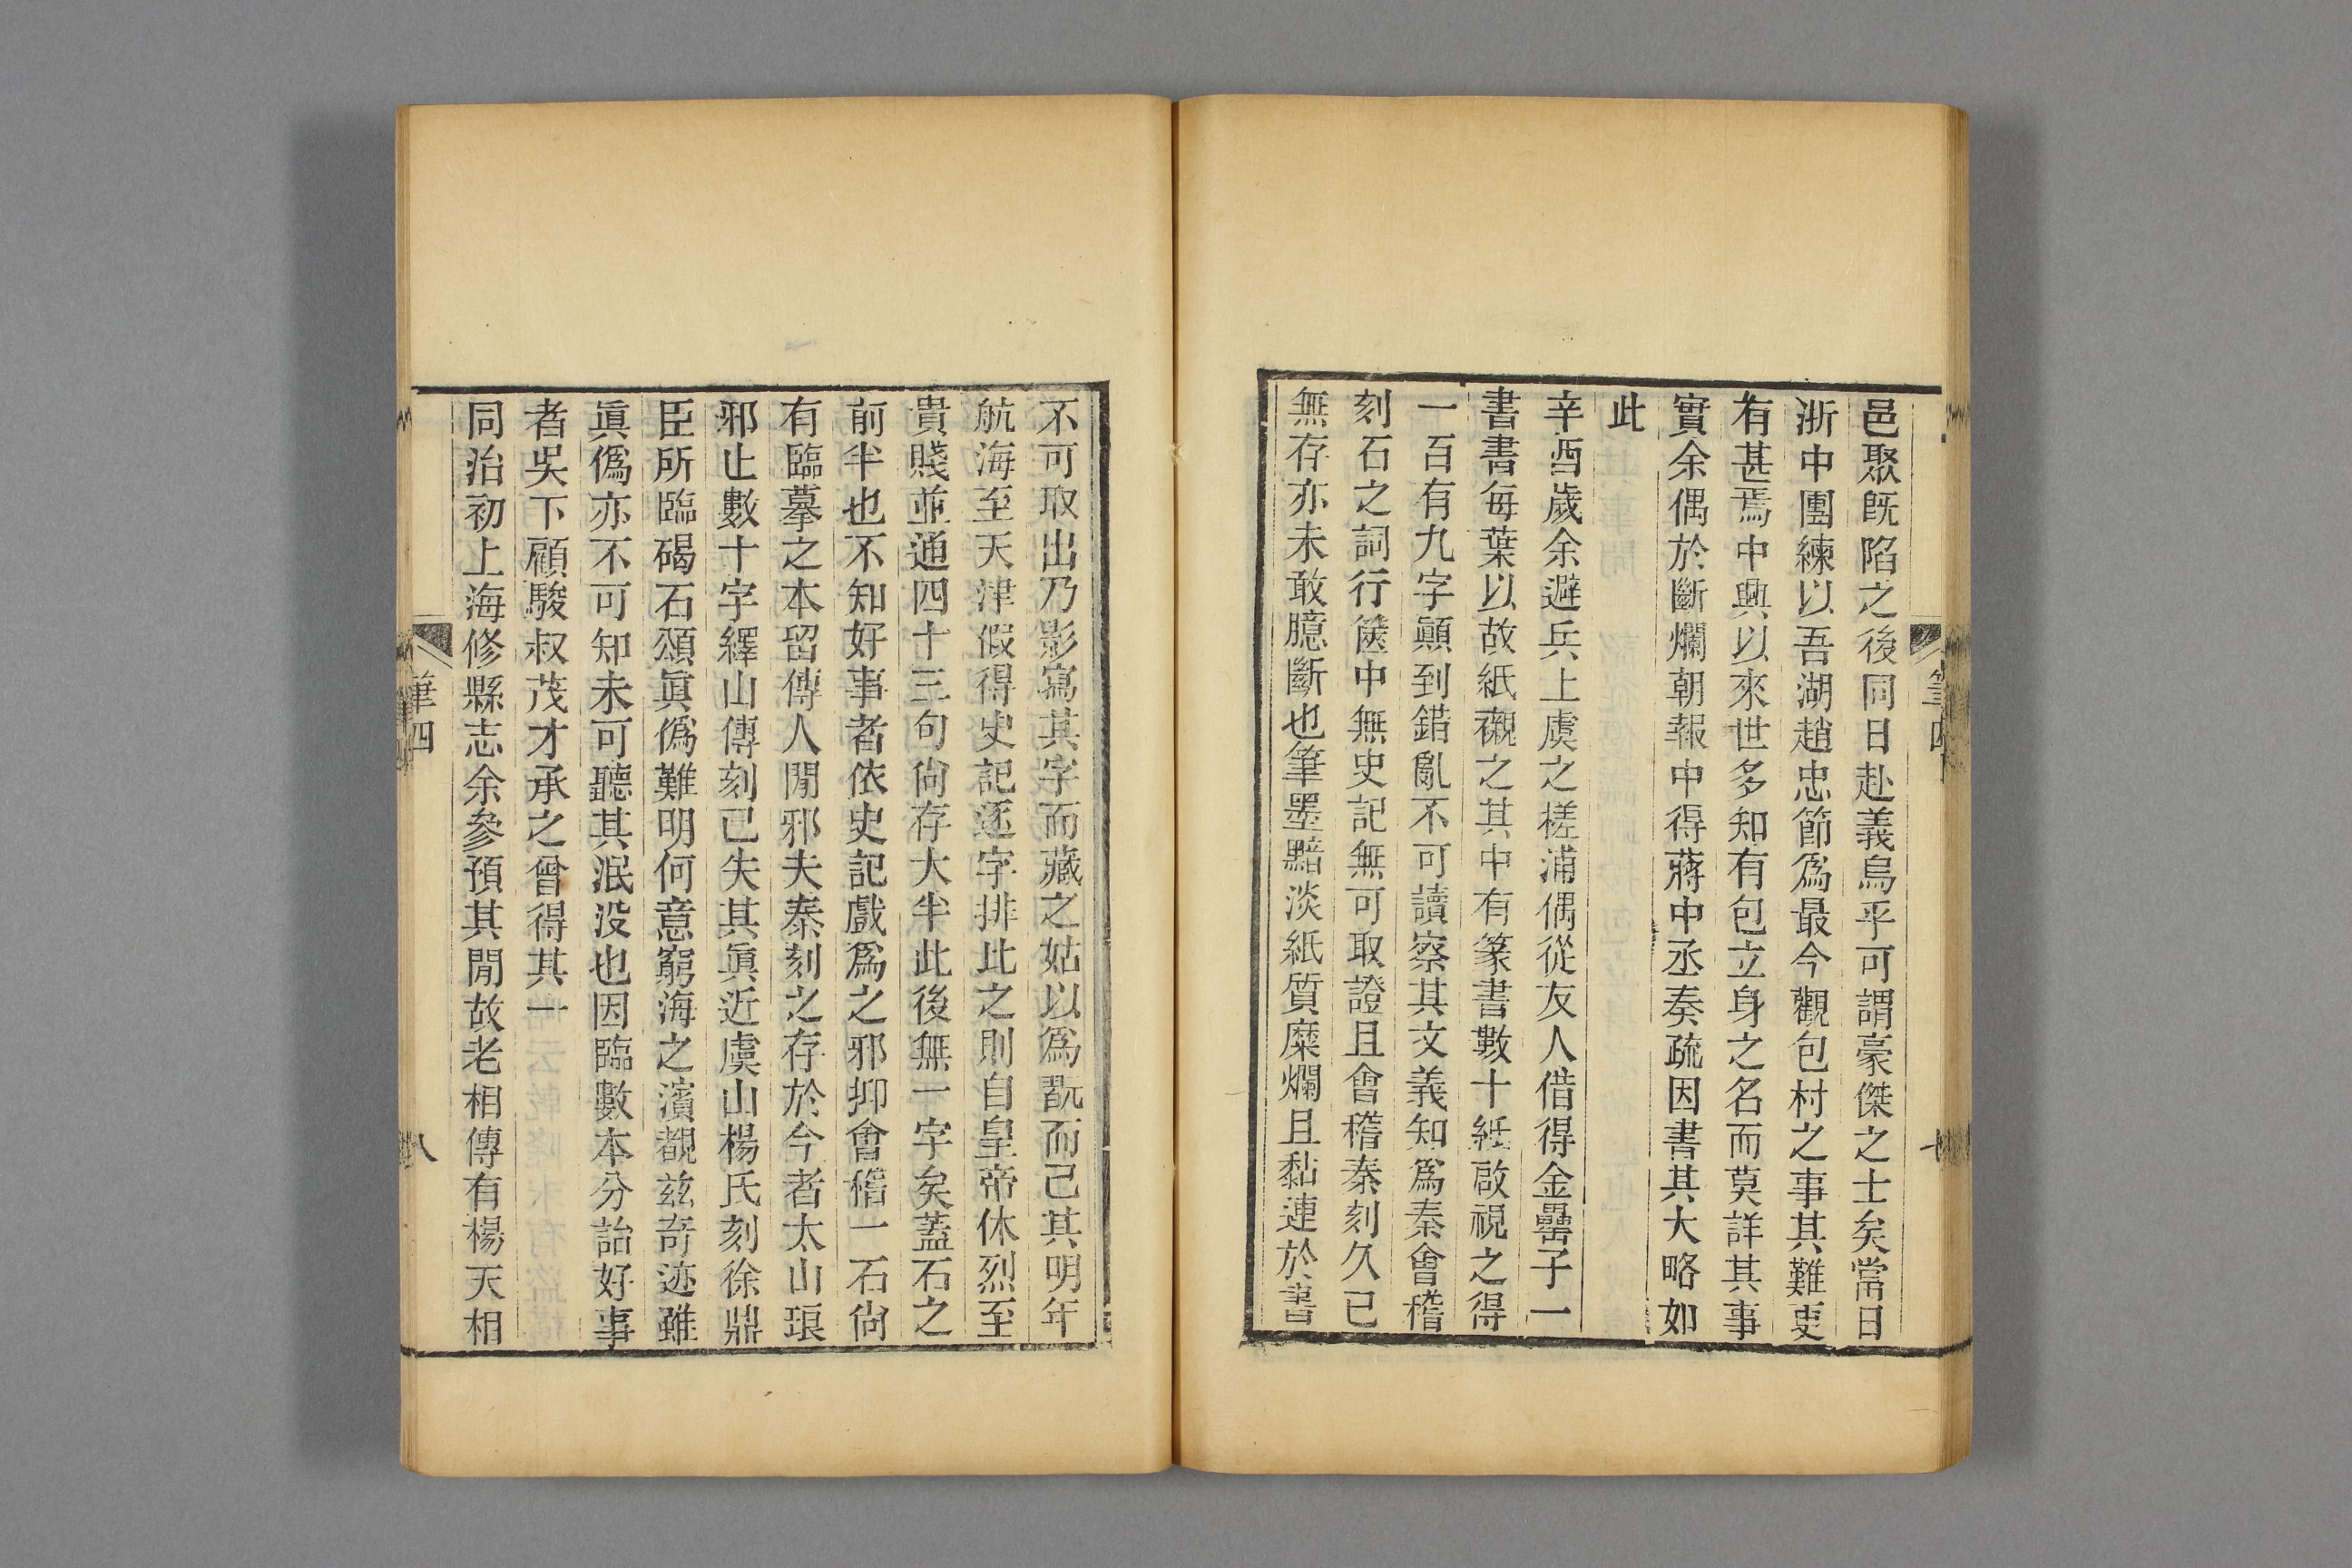 邑聚既陷之後同日赴義烏乎可謂豪傑之士矣當日
浙中團練以吾湖趙忠節爲最今觀包村之事其難更
有甚焉中興以來世多知有包立身之名而莫詳其事
實余偶於斷爛朝報中得蔣中丞奏疏因書其大略如
此
辛酉歲余避兵上虞之槎浦偶從友人借得金罍子一
書書每葉以故紙襯之其中有篆書數十紙啟視之得
一百有九字顛到錯亂不可讀察其文義知爲秦會稽
刻石之詞行篋中無史記無可取證且會稽秦刻久已
無存亦未敢臆斷也筆墨黯淡紙質糜爛且黏連於書
不可取出乃影寫其字而藏之姑以爲翫而己其明年
航海至天津假得史記逐字排比之則自皇帝休烈至
貴賤並通四十三句尙存大半此後無一字矣蓋石之
前半也不知好事者依史記戲爲之邪抑會稽一石尙
有臨摹之本留傳人閒邪夫秦刻之存於今者太山琅
邪止數十字繹山傳刻已失其眞近虞山楊氏刻徐鼎
臣所臨碣石頌眞僞難明何意窮海之濱覩茲奇迹雖
眞僞亦不可知未可聽其泯没也因臨數本分詒好事
者吳下顧駿叔茂才承之曾得其一
同治初上海修縣志余參預其閒故老相傳有楊天相
筆四
八